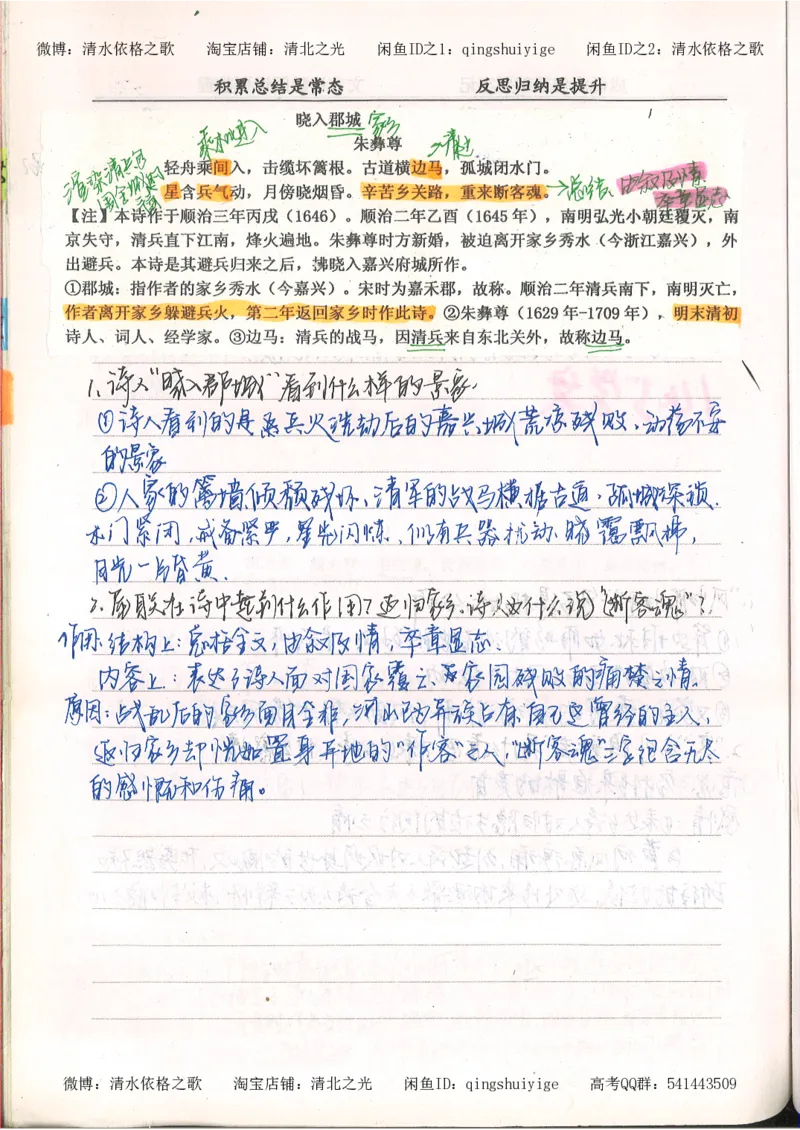 微博：清水依格之歌 淘宝店铺：清北之光 闲鱼ID之1：qingshuiyige 闲鱼ID之2：清水依格之歌
积累总结是常态 反思归纳是提升
晓入郡城 家乡
朱彝尊
乘水门进入
→清赴
轻舟乘间入，击缆坏篱根。古道横边马，孤城闭水门。
星含兵气动，月傍晓烟昏。辛苦乡关路，重来断客魂。
→总结 由叙及情
卒章显志
【注】本诗作于顺治三年丙戌（1646）。顺治二年乙酉（1645 年），南明弘光小朝廷覆灭，南
京失守，清兵直下江南，烽火遍地。朱彝尊时方新婚，被迫离开家乡秀水（今浙江嘉兴），外
出避兵。本诗是其避兵归来之后，沸晓入嘉兴府城所作。
①郡城：指作者的家乡秀水（今嘉兴）。宋时为嘉禾郡，故称。顺治二年清兵南下，南明灭亡，
作者离开家乡躲避兵火，第二年返回家乡时作此诗。②朱彝尊（1629 年-1709 年），明末清初
诗人、词人、经学家。③边马：清兵的战马，因清兵来自东北关外，故称边马。
1、诗人"晓入郡城"看到什么样的景象.
①诗人看到的是 兵火洗劫后的嘉兴城荒凉残败、动荡不安
的景象
②人家的篱墙倾颓残坏、清军的战马横据古道、孤城深锁.
水门紧闭，戒备紧严，星光闪烁、仍有兵器机动.晓雾飘拂，
月光一片昏黄.
2.尾联在诗中起到什么作用？返归家乡.诗人为什么说"断客魂"？
作用：结构上：总括全文，由叙及情，卒章显志.
内容上：表达了诗人面对国家覆亡、家园残败的痛楚之情.
原因：战乱后的家乡面目全非，河山已为异族占有.自己是曾经的主人，
返归家乡却恍如置身异地的"作客"之人，"断客魂"三字饱含无尽
的感慨和伤痛。
微博：清水依格之歌 淘宝店铺：清北之光 闲鱼ID：qingshuiyige 高考QQ群：541443509